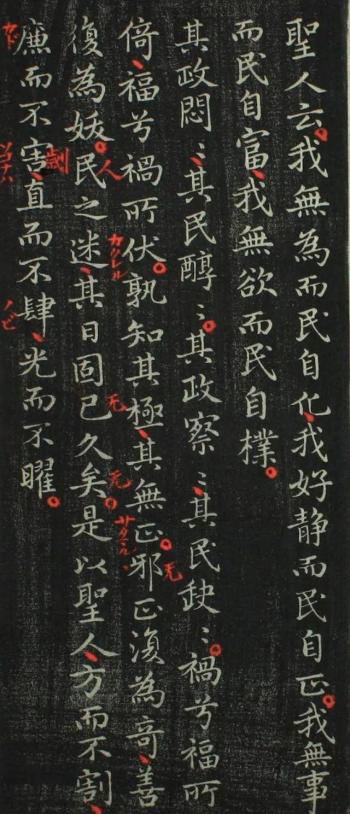 聖人云。我無為而民自化、我好静而民自正。我無事
而民自富、我無欲而民自樸。
其政悶〻、其民醇〻。其政察〻、其民缺〻。禍兮福所
倚、福兮禍所伏。孰知其極、其無正。邪正復為奇、善
无
復為妖。民之迷、其日固已久矣。是以聖人、方而不割、
人
カクレル
无
无
廉而不害、直而不肆、光而不曜。
カド
劌
ノビ